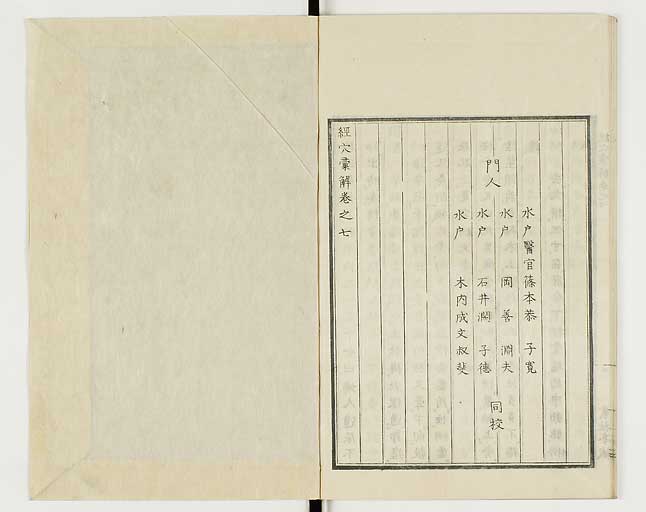 水戸醫官篠本恭　子寬
水戸　岡　善　淵夫
門人
水戸　石井澗　子德
水戸　木内成文叔斐
同挍
經穴彙解卷之七